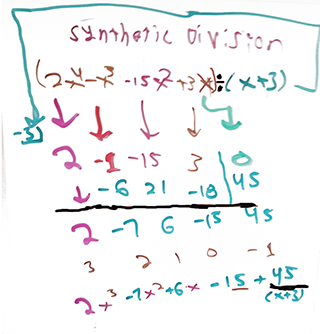 Synthetic Division
(2x⁴-x³-15x²+3x)÷(x+3)
-3
2 -1 -15 3 0
-6 21 -18 45
2 -7 6 -15 45
3 2 1 0 -1
2x³-7x²+6x-15+45/(x+3)